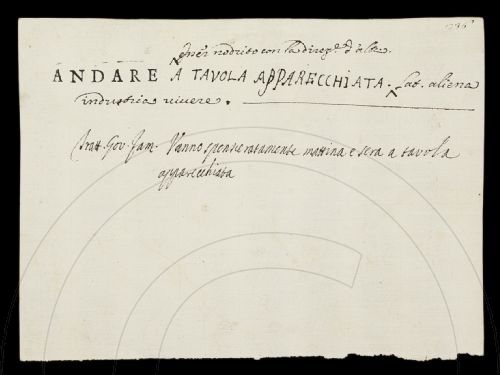 Esser nodrito con la dilig.ª d'altr.
ANDARE A TAVOLA APPARECCHIATA. Lat. aliena
industria vivere.
Tratt. Gov. fam. Vanno spensieratamente mattina e sera a tavola
apparecchiata